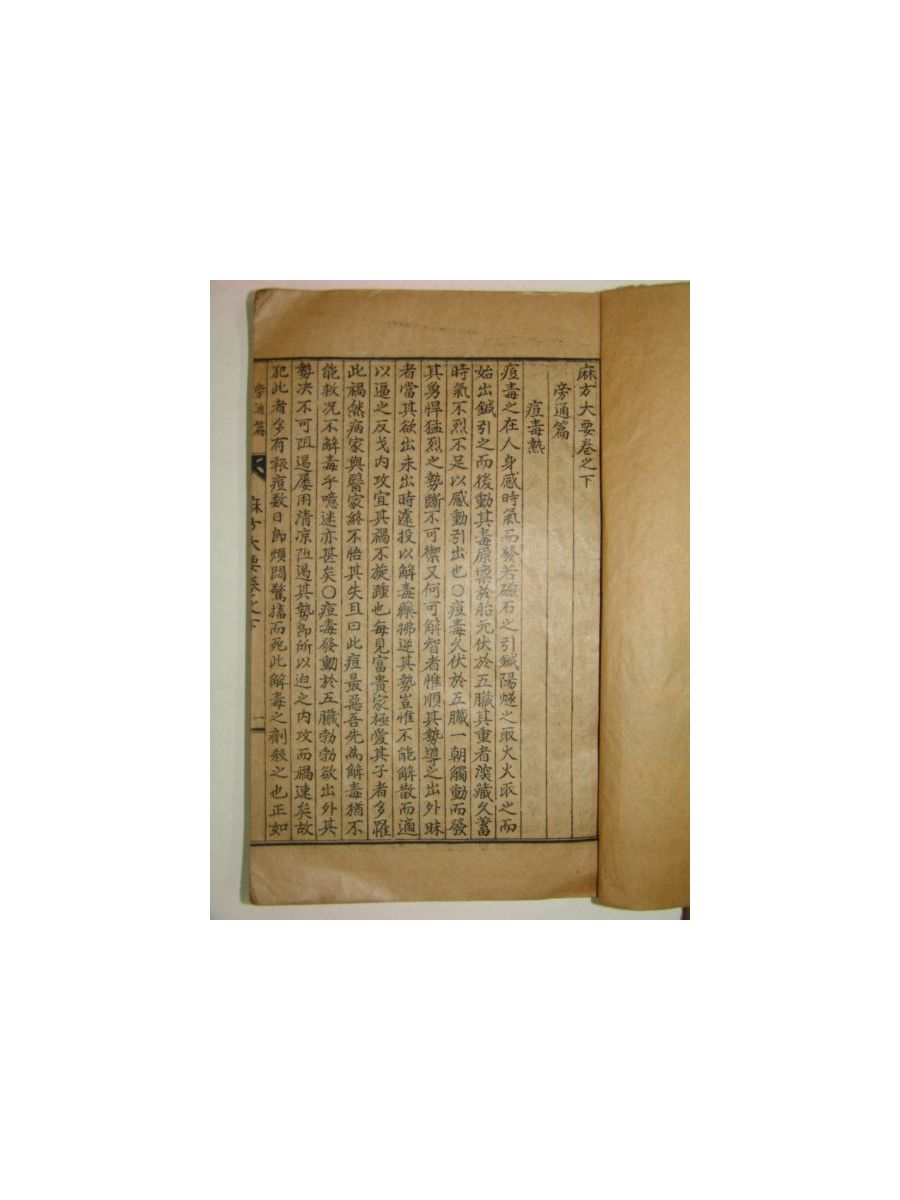 麻方大要卷之下
旁通篇
痘毒熱
痘毒之在人身感時氣而發若磁石之引鍼陽燧之取火火取之而
始出鍼引之而後動其毒原稟於胎元伏於五臟其重者深藏久蓄
時氣不烈不足以感動引出也○痘毒久伏於五臟一朝觸動而發
其勇悍猛烈之勢斷不可禦又何可解智者惟順其勢導之出外昧
者當其欲出未出時遽投以解毒藥拂逆其勢豈惟不能解散而適
以逼之反戈內攻宜其禍不旋踵也每見富貴家極愛其子者多罹
此禍然病家與醫家終不悟其失且曰此痘最惡吾先為解毒猶不
能救况不解毒乎噫迷亦甚矣○痘毒發動於五臟勃勃欲出外其
勢决不可阻遏屢用清凉阻遏其勢即所以迫之內攻而禍速矣故
犯此者多有報痘数日即煩悶驚搐而死此解毒之劑殺之也正如
旁通篇 麻方大要卷之下 一